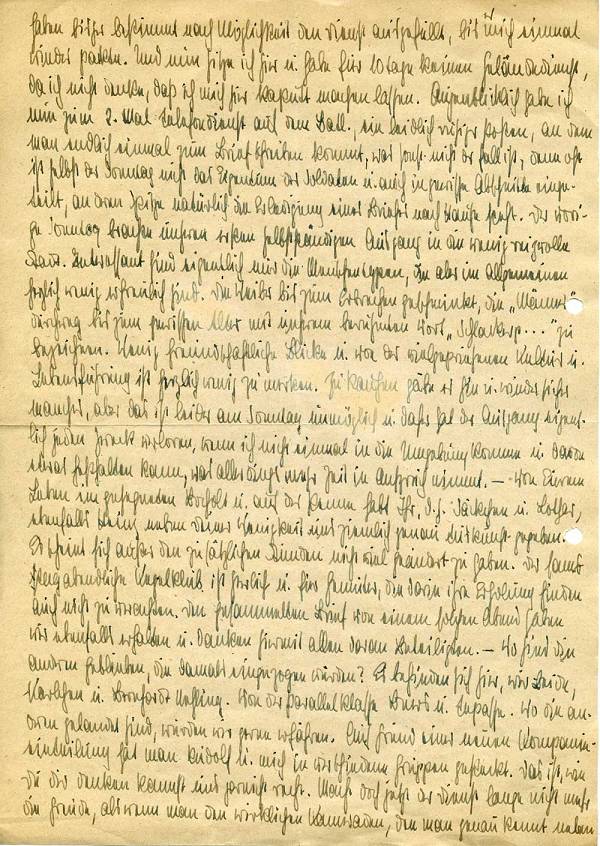 haben bisher bestimmt nach Möglichkeit den Dienst ausgefüllt, bis mich einmal
wieder packen. Und nun sitze ich hier u. habe für 10 Tage keinen Geländedienst,
da ich nicht denke, daß ich mich hier kaputt machen lassen. Augenblicklich habe ich
nun zum 2. Mal Telefondienst auf dem Batl. ein leidlich ruhiger Posten, an dem
man endlich einmal zum Brief schreiben kommt, was sonst nicht der Fall ist, denn oft
ist selbst der Sonntag nicht das Eigentum des Soldaten u. auch in gewisse Abschnitte einge-
teilt, an deren Spitze natürlich die Erledigung eines Briefes nach Hause steht. Der vori-
ge Sonntag brachte unseren ersten selbstständigen Ausgang in die wenig reizvolle
Stadt. Interessant sind eigentlich nur die Menschentypen, die aber im Allgemeinen
herzlich wenig erfreulich sind. Die Weiber bis zum Erbrechen geschminkt, die „Männer"
durchweg bis zum gewissen Alter mit unserem berühmten Wort „Schlaks..." zu
bezeichnen. Wenig freundschaftliche Blicke u. von der vielgepriesenen Kultur u.
Lebensführung ist herzlich wenig zu merken. Zu kaufen gäbe es hin u. wieder sicher
manches, aber das ist leider am Sonntag unmöglich u. daher hat der Ausgang eigent-
lich jeden Zweck verloren, wenn ich nicht einmal in die Umgebung komme u. davon
etwas festhalten kann, was allerdings mehr Zeit in Anspruch nimmt. — Von Eurem
Leben im gesegneten Bocholt u. auf der Penne habt Ihr, d.h. u. Lothar,
ebenfalls neben Deiner Wenigkeit uns ziemlich genau Auskunft gegeben.
Es scheint sich außer den zusätzlichen Stunden nicht viel geändert zu haben. Der sams-
tagabendliche Kegelklub ist herrlich u. für Gemüter, die darin ihre Erholung finden
auch nicht zu verachten. Den gesammelten Brief von einem solchen Abend haben
wir ebenfalls erhalten u. danken hiermit allen daran Beteiligten. — Wo sind die
anderen geblieben, die damals eingezogen wurden? Es befinden sich hier, wir beide,
Karlchen u. Bernhard. Von der Parallelklasse u. Wo die an-
deren gelandet sind, würden wir gern erfahren. Auf Grund einer neuen Kompanie-
einteilung hat man Rudolf u. mich in verschiedene Gruppen gesteckt. Das ist, wie
Du Dir denken kannst uns gar nicht recht. Macht doch jetzt der Dienst lange nicht mehr
die Freude, als wenn man den wirklichen Kameraden, den man genau kennt neben